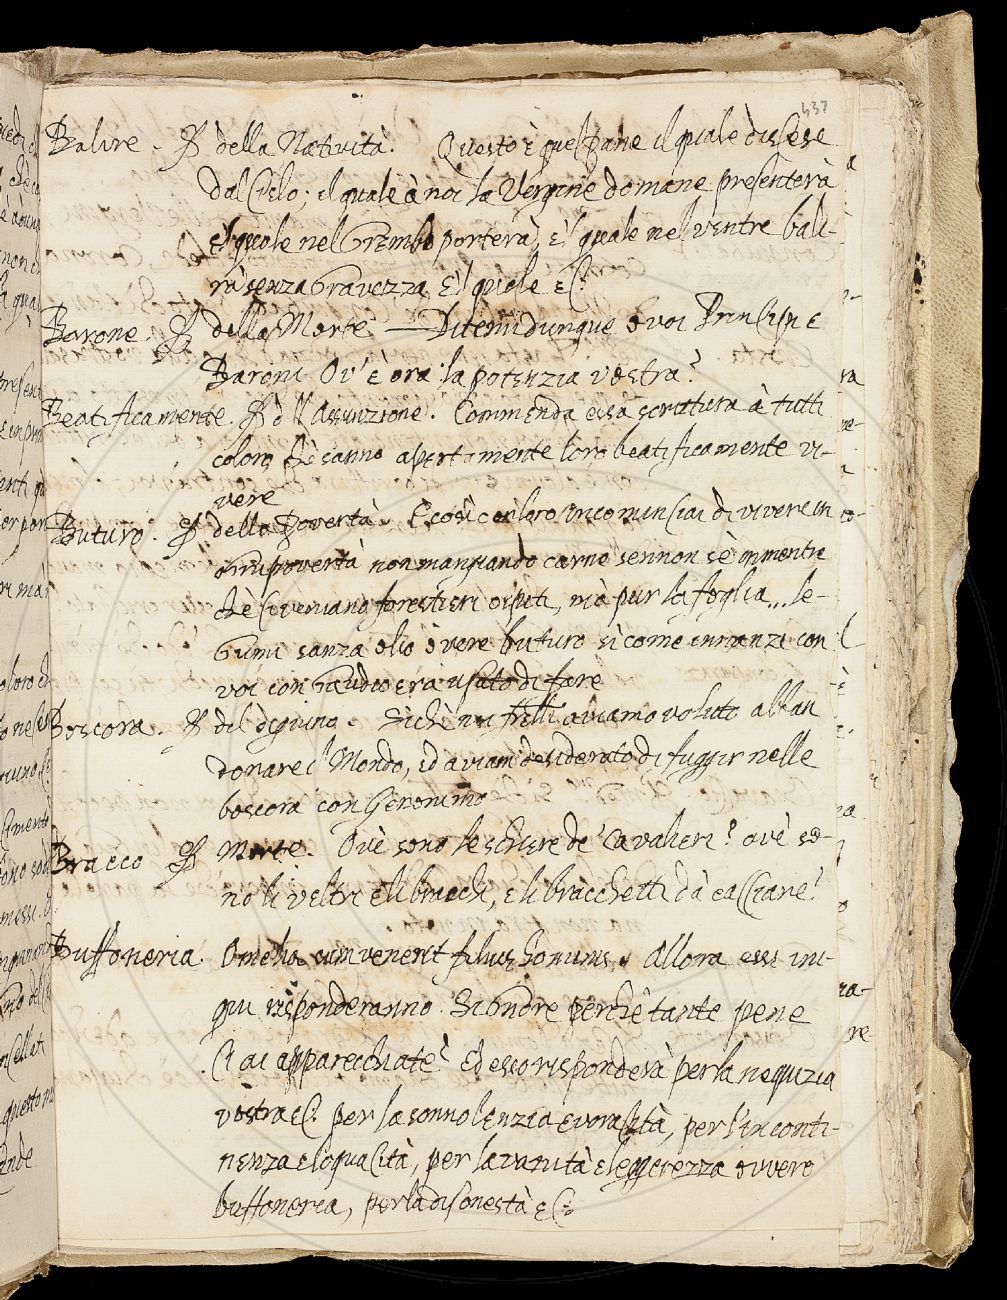 437
Balire. S. della Natività. Questo è quel pane il quale discese
dal Cielo; il quale à noi la Vergine domane presenterà
e'l quale nel Grembo porterà, e'l quale nel ventre bali-
rà senza Gravezza, E'l quale Ec.
Barone. S. della Morte — Ditemi dunque o voi Principi e
Baroni Ov'è ora la potenzia vostra?
Beatificamente. S. dll Assunzione. Commenda essa scrittura à tutti
coloro chè sanno apertamente loro beatificamente vi-
vere
Buturo. S. della Povertà. E così con loro incominciai di vivere in
Gran povertà non mangiando carne sennon sè inmentre
chè ci veniano forestieri ospiti, mà pur la foglia... le-
Gumi sanza olio overe buturo sì come innanzi con
voi con Gaudio era usato di fare
Boscora. S. del digiuno. Sichè mij frelli aviamo voluto abban
donare l Mondo, ed aviam desiderato di fuggir nelle
boscora con Geronimo
Bracco S. Morte. Ov'è sono le schiere de' Cavalieri? ov'è so-
no li veltri e li bracchi, e li bracchetti dà cacciare?
Buffoneria. Omelia cum venerit filius hominis. Allora essi ini-
qui risponderanno. Signore perchè tante pene
Ci ai apparecchiate? Ed esso risponderà per la nequizia
vostra Ec. per la sonnolenzia e voracità, per l'inconti-
nenza e loquacità, per la vanità e leggerezza ovvero
buffoneria, per la disonestà Ec.